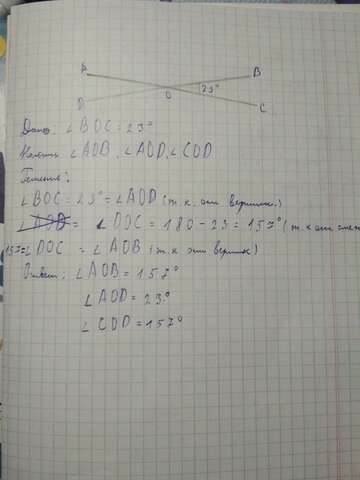 A
B
D
O
23°
C
Дано: ∠BOC = 23°
Найти: ∠AOB, ∠AOD, ∠COD
Решение:
∠BOC = 23° = ∠AOD (т.к. они вертик.)
∠AOD = ∠DOC = 180 - 23 = 157° (т.к они смеж
157=∠DOC = ∠AOB (т.к они вертик)
Ответ: ∠AOB = 157°
∠AOD = 23°
∠COD = 157°